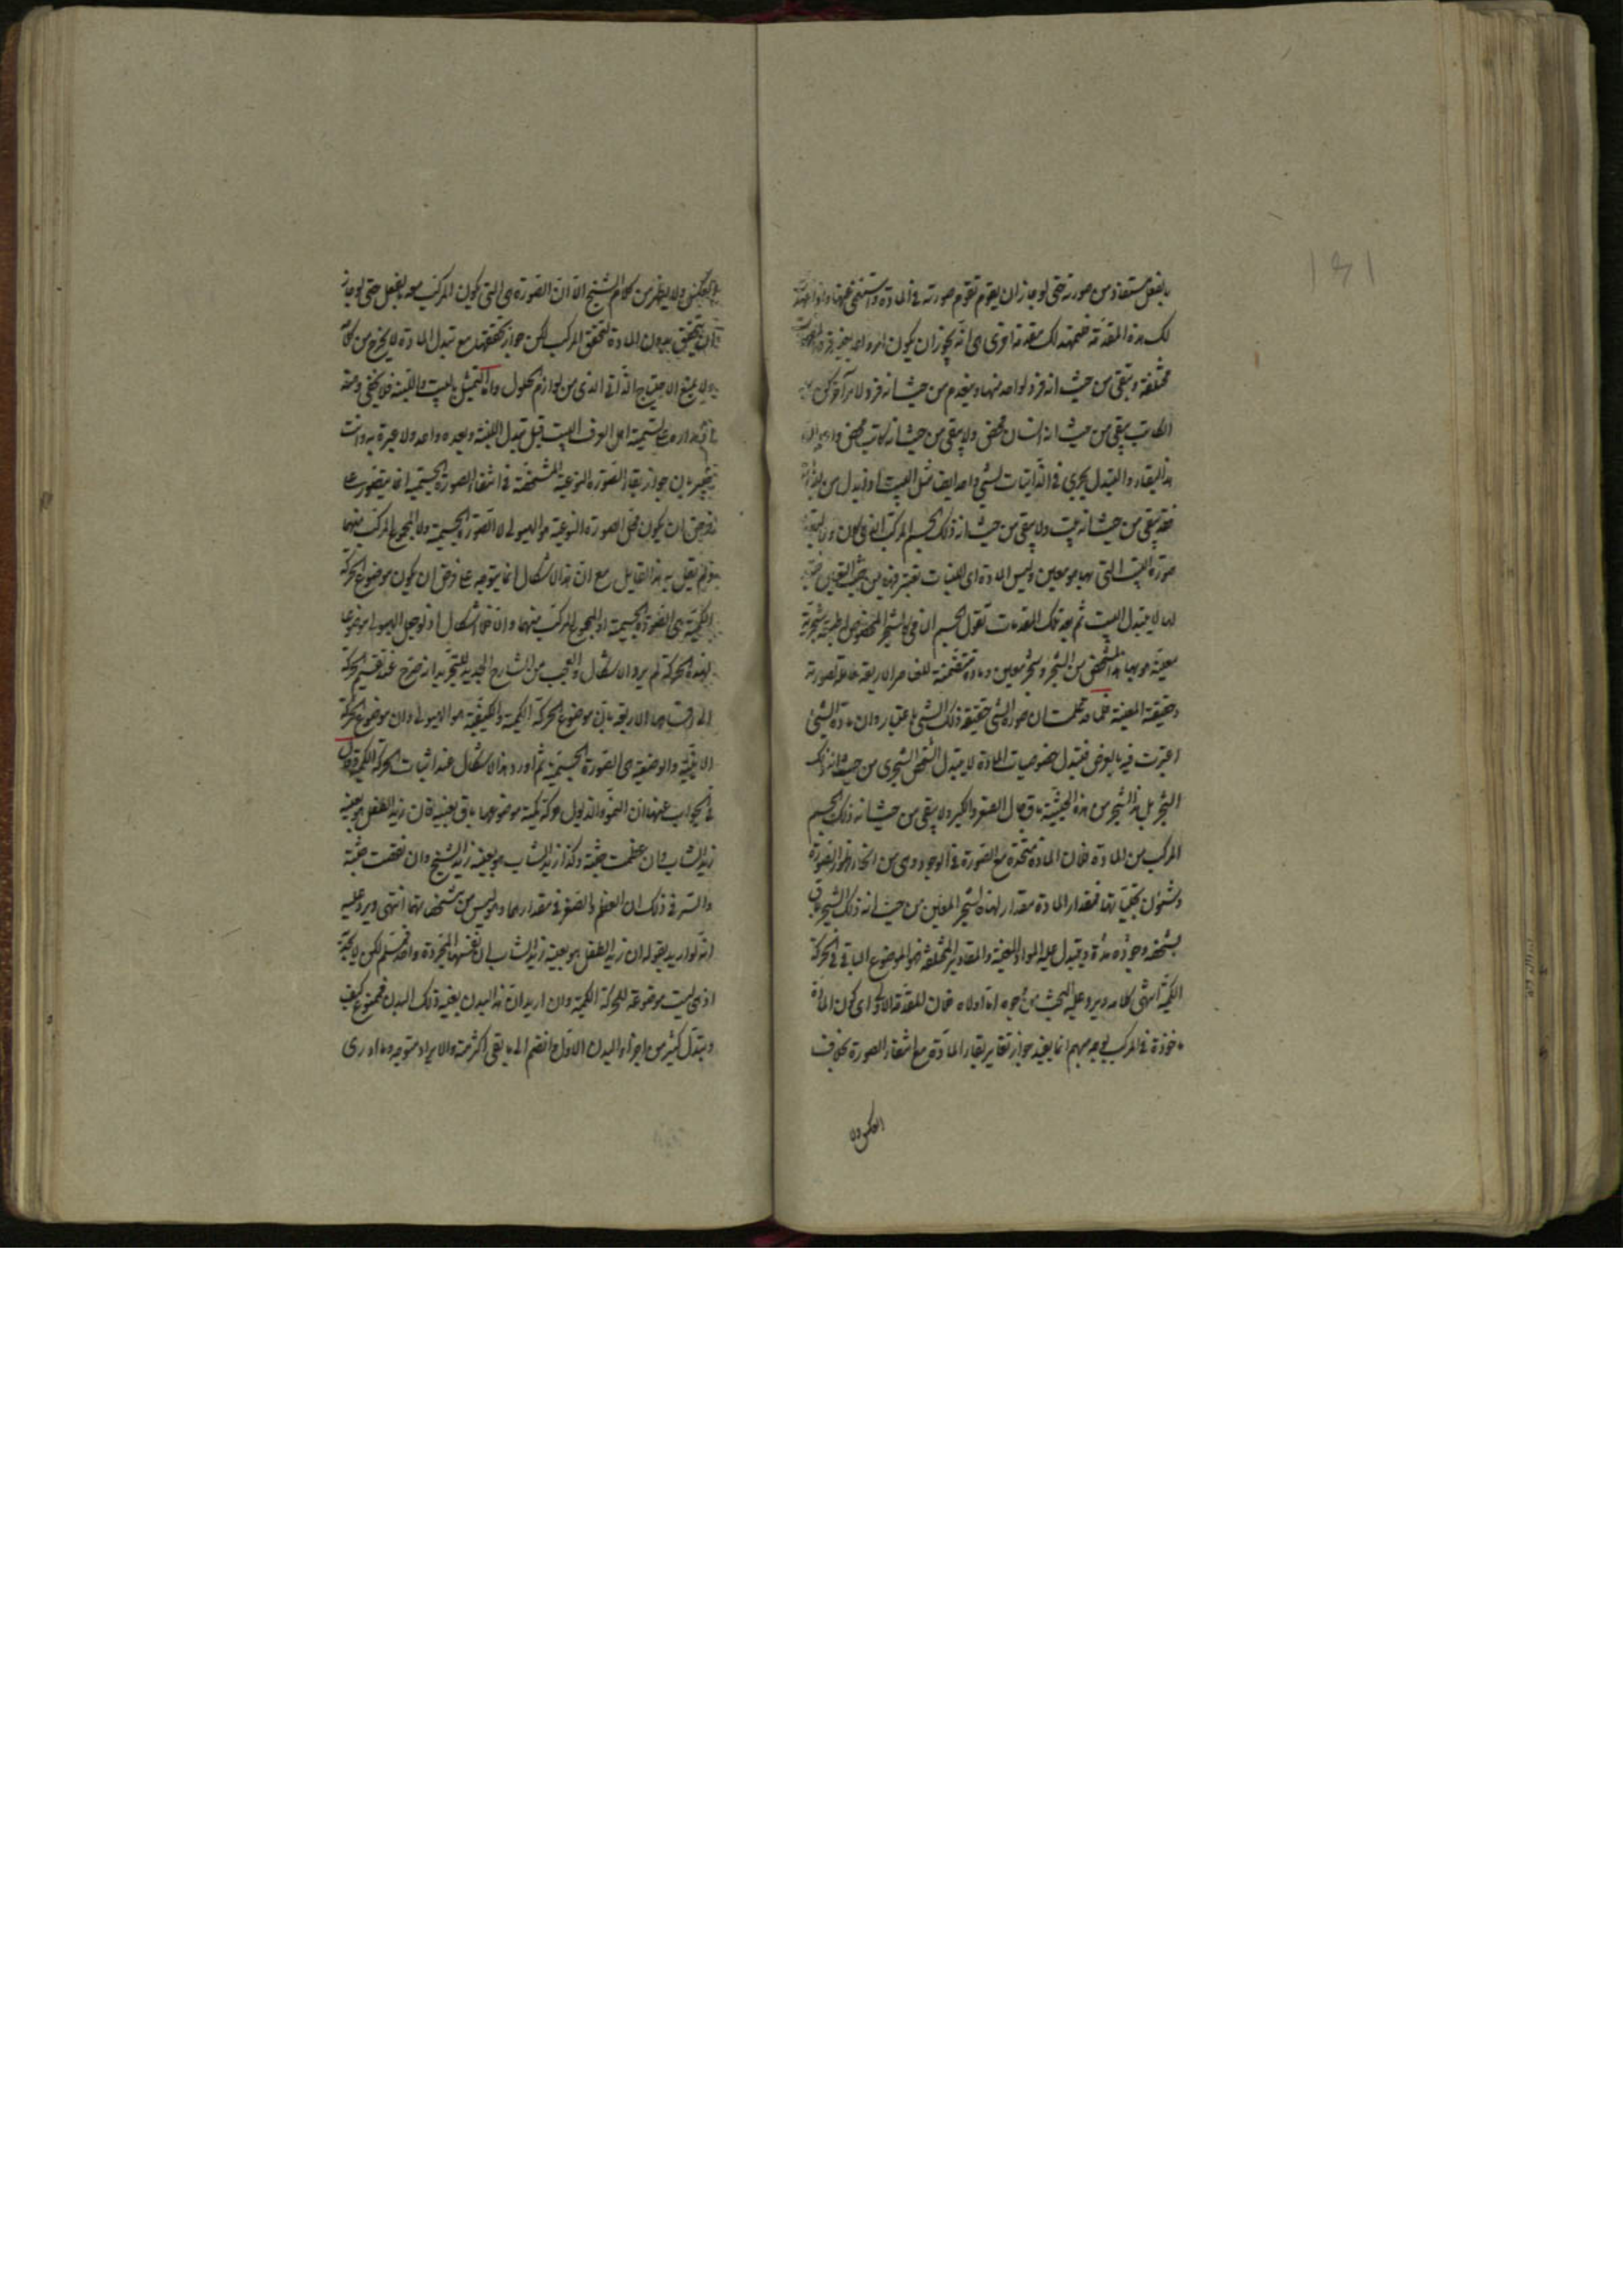 بالفعل مستفاد من صورته حتى لو جاز ان يقوم تقوم صورته فى المادة واستغنى عنها
لك هذه المقدمة فلنمهد لك مقدمة اخرى هى انه يجوز ان يكون امر واحد
مختلفة ويبقى من حيث انه فرد لواحد منها وينعدم من حيث انه فرد لامر آخر
الكاتب يبقى من حيث انه انسان محض ولا يبقى من حيث انه كاتب محض
هذا البقاء والتبدل يجرى فى الذاتيات لشئ واحد ايضا مثل البيت اذا تبدل من
فقد يبقى من حيث انه بيت ولا يبقى من حيث انه ذلك الجسم المركب
صورة البيت التى بها هو معين وليس المادة اى اللبنات تعتبر فيه
لها لا يتبدل البيت ثم بعد تلك المقدمات نقول الجسم النامى كالشجر المخصوص له طبيعة شجرية
معينة هو بها هذا الشخص من الشجر وشجر معين ومادة متقسمة للعناصر الاربعة حاملة لصورته
وحقيقته المعينة فلما قد علمت ان صورة الشئ حقيقة ذلك الشئ باعتبار وان مادة الشئ
اعتبرت فيه بالعرض فتبدل خصوصيات المادة لا يتبدل الشخص الشجرى من حيث انه ذلك
الشجر بل هذا الشجر من هذه الحيثية باق حال الصغر والكبر ولا يبقى من حيث انه ذلك الجسم
المركب من المادة فان المادة متحدة مع الصورة فى الوجود وهى من اطوار الصورة
وشئون تجلياتها فمقدار المادة مقدار لهذا الشجر المعين من حيث انه ذلك الشجر باق
بشخصه وجوده مدة ويتبدل عليه المواد المعينة والمقادير المختلفة فهو الموضوع الباقى فى الحركة
الكمية انتهى كلامه ويرد عليه البحث من وجوه اما اولا فلان المقدمة الاولى اى كون المادة
ماخوذة فى المركب على وجه مبهم انما يفيد جواز تغاير بقاء المادة مع انتفاء الصورة بخلاف
العكس ولا
العكس ولا يظهر من كلام الشيخ الا ان الصورة هى التى يكون المركب معه بالفعل حتى لو جاز
ان يتحقق بدون المادة لتحقق المركب لكن جواز تحققها مع تبدل المادة لا يخرج من كلامه
ولا يمنع الاحتياج الذاتى الذى من لوازم الحلول واما التمثيل بالبيت واللبنة فلا يخفى وهنه
فانه مدار على تسمية اهل العرف البيت قبل تبدل اللبنة وبعده واحد ولا عبرة به وانت
خبير بان جواز بقاء الصورة النوعية المشخصة فى انتفاء الصورة الجسمية انما يتصور على
فرض ان يكون محل الصورة النوعية هو الهيولى لا الصورة الجسمية ولا المجموع المركب منهما
ولم يقل به هذا القايل مع ان هذا الاشكال انما يتوجه على فرض ان يكون موضوع الحركة
الكمية هى الصورة الجسمية او المجموع المركب منهما والا فلا اشكال اذ لو جعل الهيولى موضوعا
لهذه الحركة لم يرد الاشكال والعجب من الشارح الجديد للتجريد انه صرح عند تقسيم الحركة
الى اقسامها الاربعة بان موضوع الحركة الكمية والكيفية هو الهيولى وان موضوع الحركة
الاينية والوضعية هى الصورة الجسمية ثم اورد هذا الاشكال عند اثبات الحركة الكمية وقال
فى الجواب عنه ان النمو والذبول حركة كمية موضوعها باق بعينه فان زيد الطفل هو بعينه
زيد الشاب وان عظمت جثته وكذا زيد الشاب هو بعينه زيد الشيخ وان نقصت جثته
والسر فى ذلك ان العظم والصغر فى مقدارهما وهو ليس من مشخصاتها انتهى ويرد عليه
انه لو اريد بقوله ان زيد الطفل هو بعينه زيد الشاب ان نفسهما المجردة واحدة فمسلم لكن لا يجديه
اذ هى ليست موضوعة للحركة الكمية وان اريد ان هذا البدن بعينه ذلك البدن فممنوع كيف
ويتبدل كثير من اجزاء البدن الاول وانضم الى ما بقى اكثر منه والايراد متوجه وما ادرى